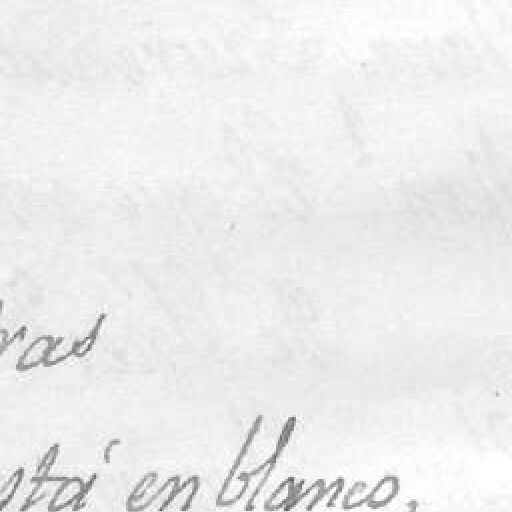 ras
stá en blanco.